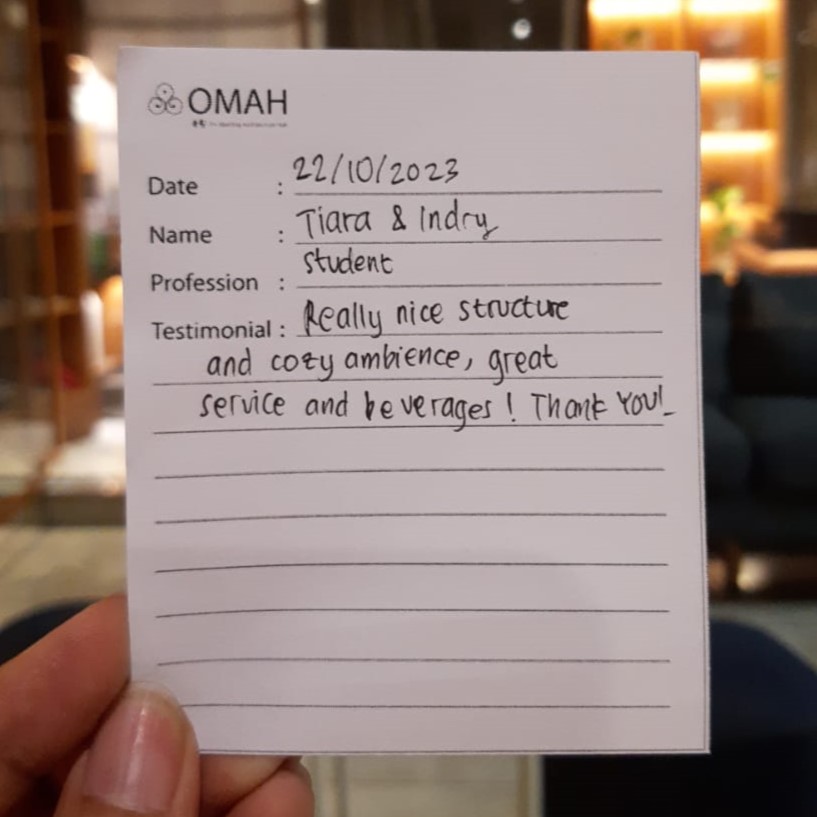 OMAH
Date : 22/10/2023
Name : Tiara & Indry
Profession : student
Testimonial : Really nice structure
and cozy ambience, great
service and beverages ! Thank You!